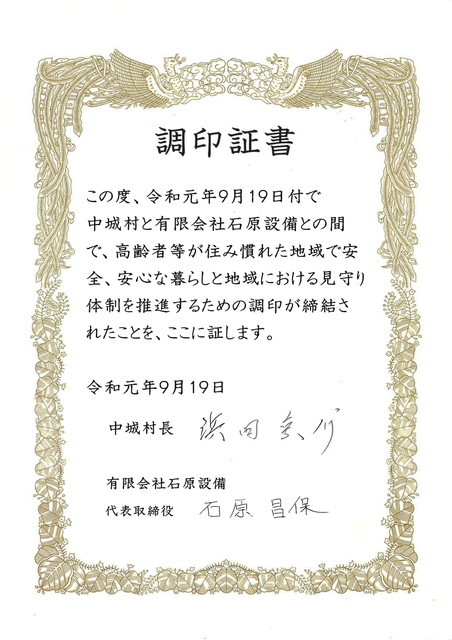 調印証書
この度、令和元年9月19日付で
中城村と有限会社石原設備との間
で、高齢者等が住み慣れた地域で安
全、安心な暮らしと地域における見守り
体制を推進するための調印が締結さ
れたことを、ここに証します。
令和元年9月19日
中城村長 浜田京介
有限会社石原設備
代表取締役 石原昌保